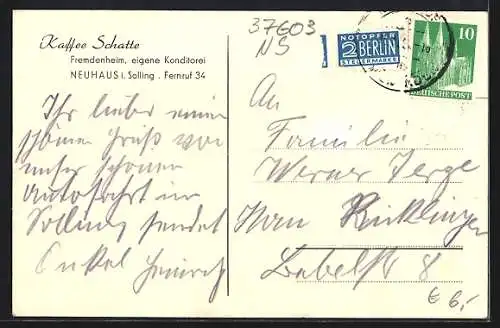 Kaffee Schatte
Fremdenheim, eigene Konditorei
NEUHAUS i. Solling . Fernruf 34
37603
NS
NOTOPFER
2 BERLIN
STEUERMARKE
10
DEUTSCHE POST
Ihr lieben einen
schönen Gruß von
unser schönen
Autofahrt im
Solling sendet
Onkel Heinrich
An
Familie
Werner
Babelstr 8
€ 6,-